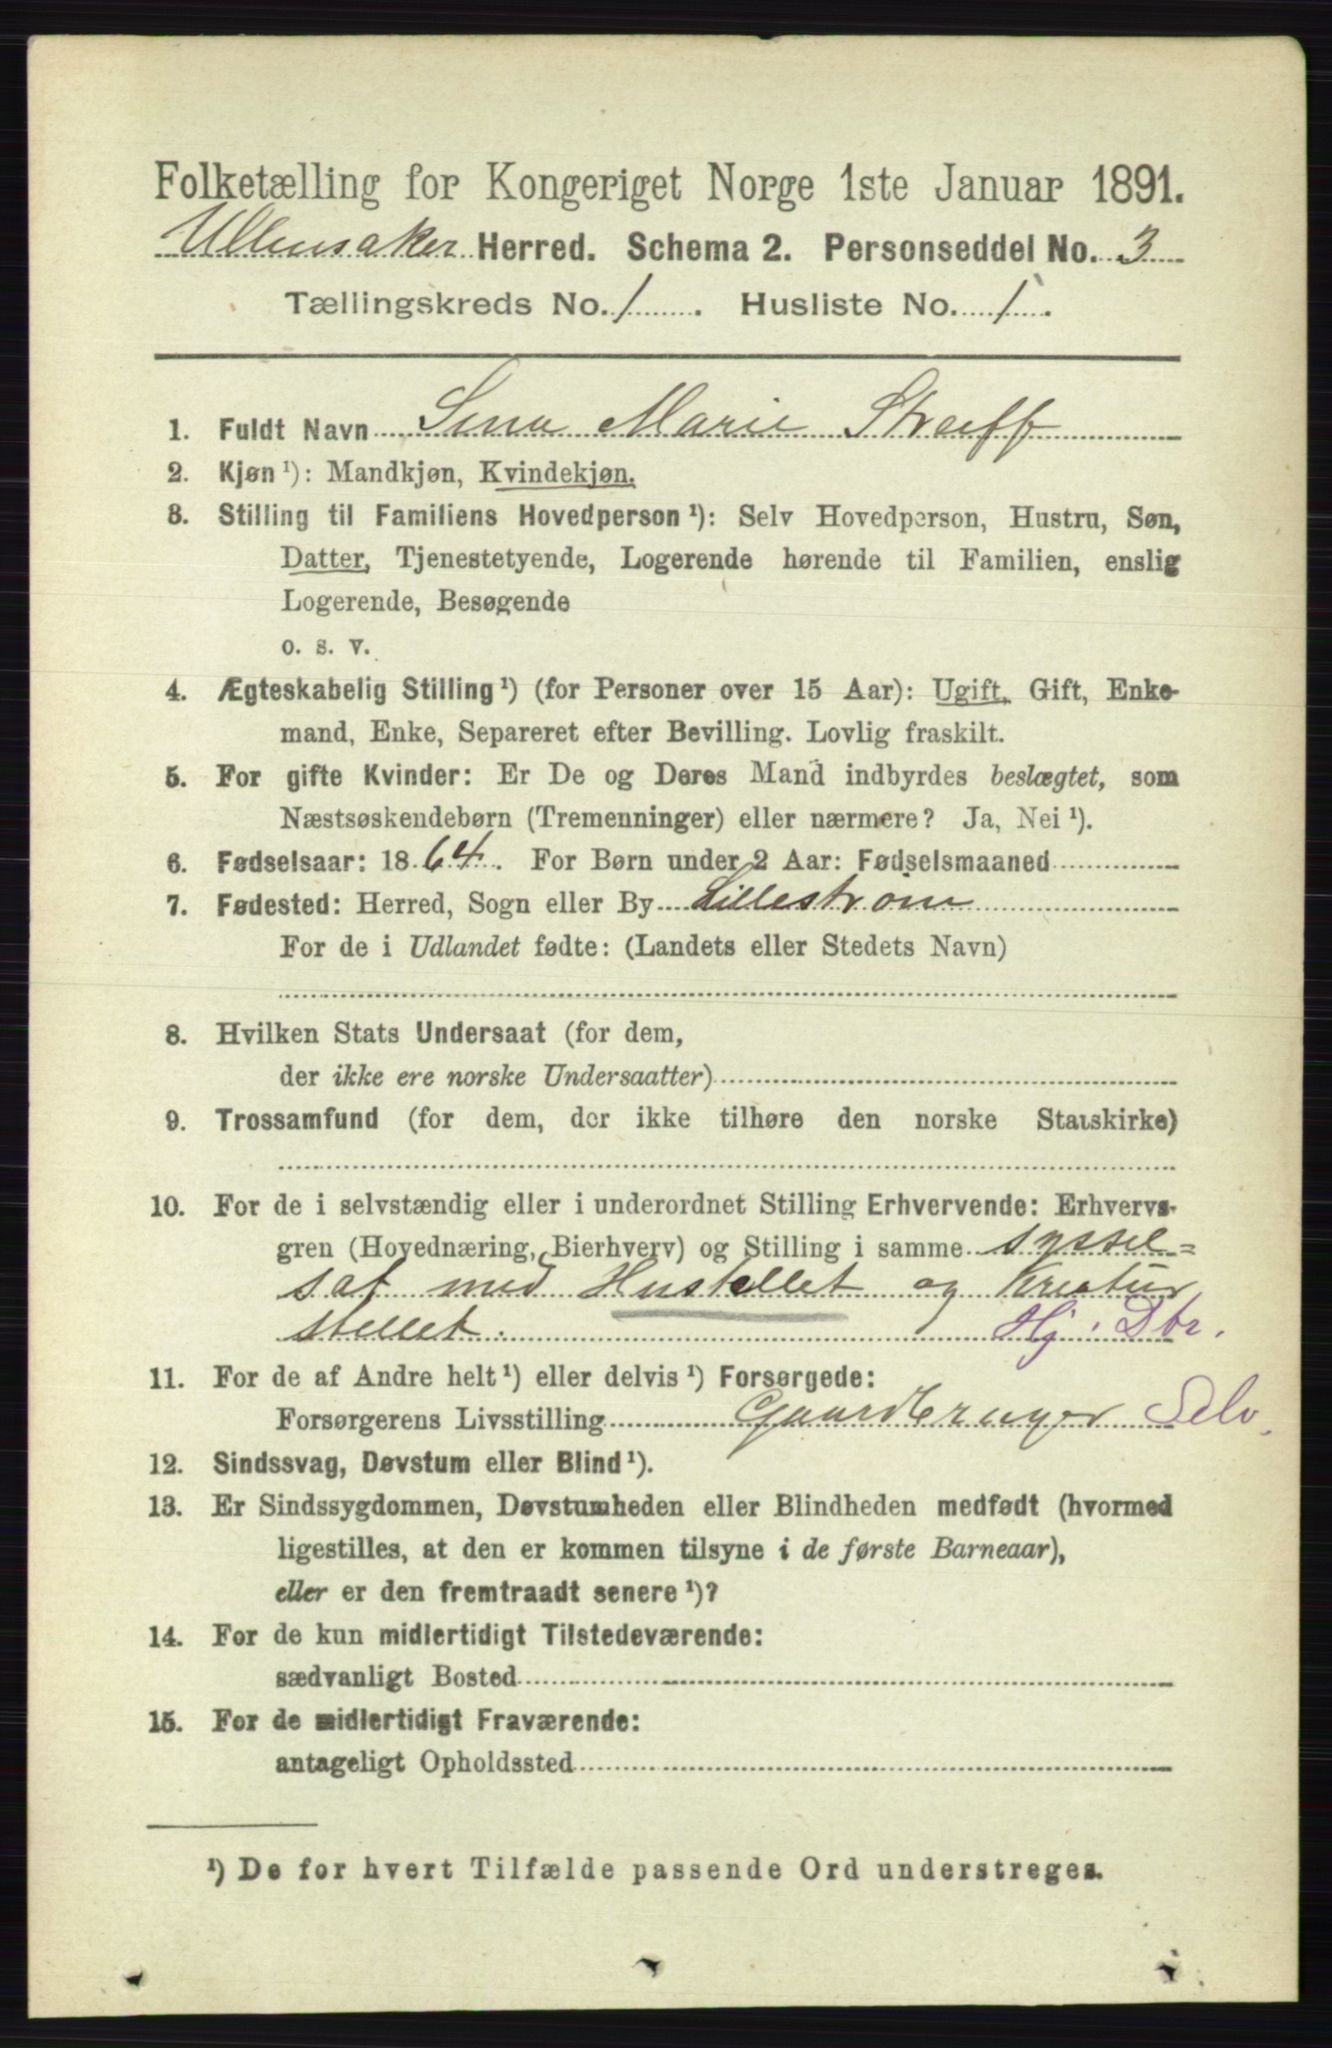 Folketælling for Kongeriget Norge 1ste Januar 1891.
Ullensaker Herred. Schema 2. Personseddel No. 3
Tællingskreds No. 1. Husliste No. 1.
1. Fuldt Navn Marie Streiff
2. Kjøn¹): Mandkjøn, Kvindekjøn.
3. Stilling til Familiens Hovedperson¹): Selv Hovedperson, Hustru, Søn,
Datter, Tjenestetyende, Logerende hørende til Familien, enslig
Logerende, Besøgende
o. s. v.
4. Ægteskabelig Stilling¹) (for Personer over 15 Aar): Ugift, Gift, Enke-
mand, Enke, Separeret efter Bevilling. Lovlig fraskilt.
5. For gifte Kvinder: Er De og Deres Mand indbyrdes beslægtet, som
Næstsøskendebørn (Tremenninger) eller nærmere? Ja, Nei¹).
6. Fødselsaar: 1864. For Børn under 2 Aar: Fødselsmaaned
7. Fødested: Herred, Sogn eller By Lillestrøm
For de i Udlandet fødte: (Landets eller Stedets Navn)
8. Hvilken Stats Undersaat (for dem,
der ikke ere norske Undersaatter)
9. Trossamfund (for dem, der ikke tilhøre den norske Statskirke)
10. For de i selvstændig eller i underordnet Stilling Erhvervende: Erhvervs-
gren (Hovednæring, Bierhverv) og Stilling i samme syssel=
sat med Hustellet og Kreatur
stellet. Hj. Dtr.
11. For de af Andre helt¹) eller delvis¹) Forsørgede:
Forsørgerens Livsstilling Gaardbruger Selv.
12. Sindssvag, Døvstum eller Blind¹).
13. Er Sindssygdommen, Døvstumheden eller Blindheden medfødt (hvormed
ligestilles, at den er kommen tilsyne i de første Barneaar),
eller er den fremtraadt senere¹)?
14. For de kun midlertidigt Tilstedeværende:
sædvanligt Bosted
15. For de midlertidigt Fraværende:
antageligt Opholdssted
¹) De for hvert Tilfælde passende Ord understreges.